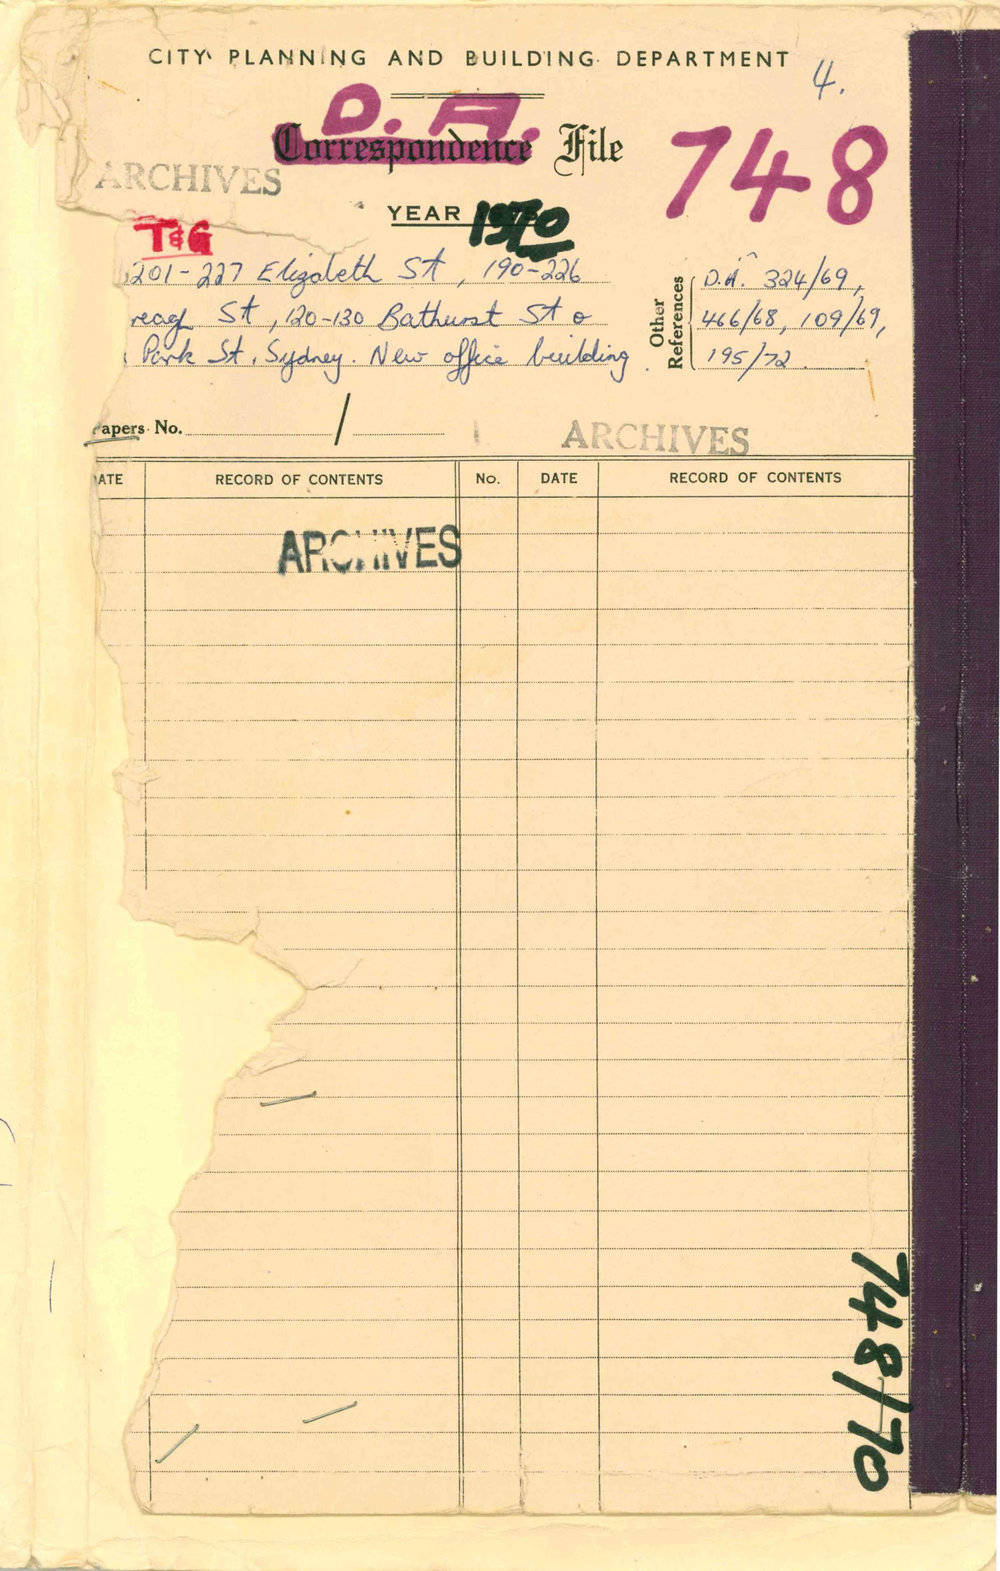 CITY PLANNING AND BUILDING DEPARTMENT
4.
D. A.
Correspondence File
748
ARCHIVES
YEAR 1970
T&G
201-227 Elizabeth St, 190-226
reagh St, 120-130 Bathurst St &
Park St, Sydney. New office building
Other References
D.A. 324/69,
466/68, 109/69,
195/72
apers No. /
ARCHIVES
ATE RECORD OF CONTENTS No. DATE RECORD OF CONTENTS
ARCHIVES
748/70